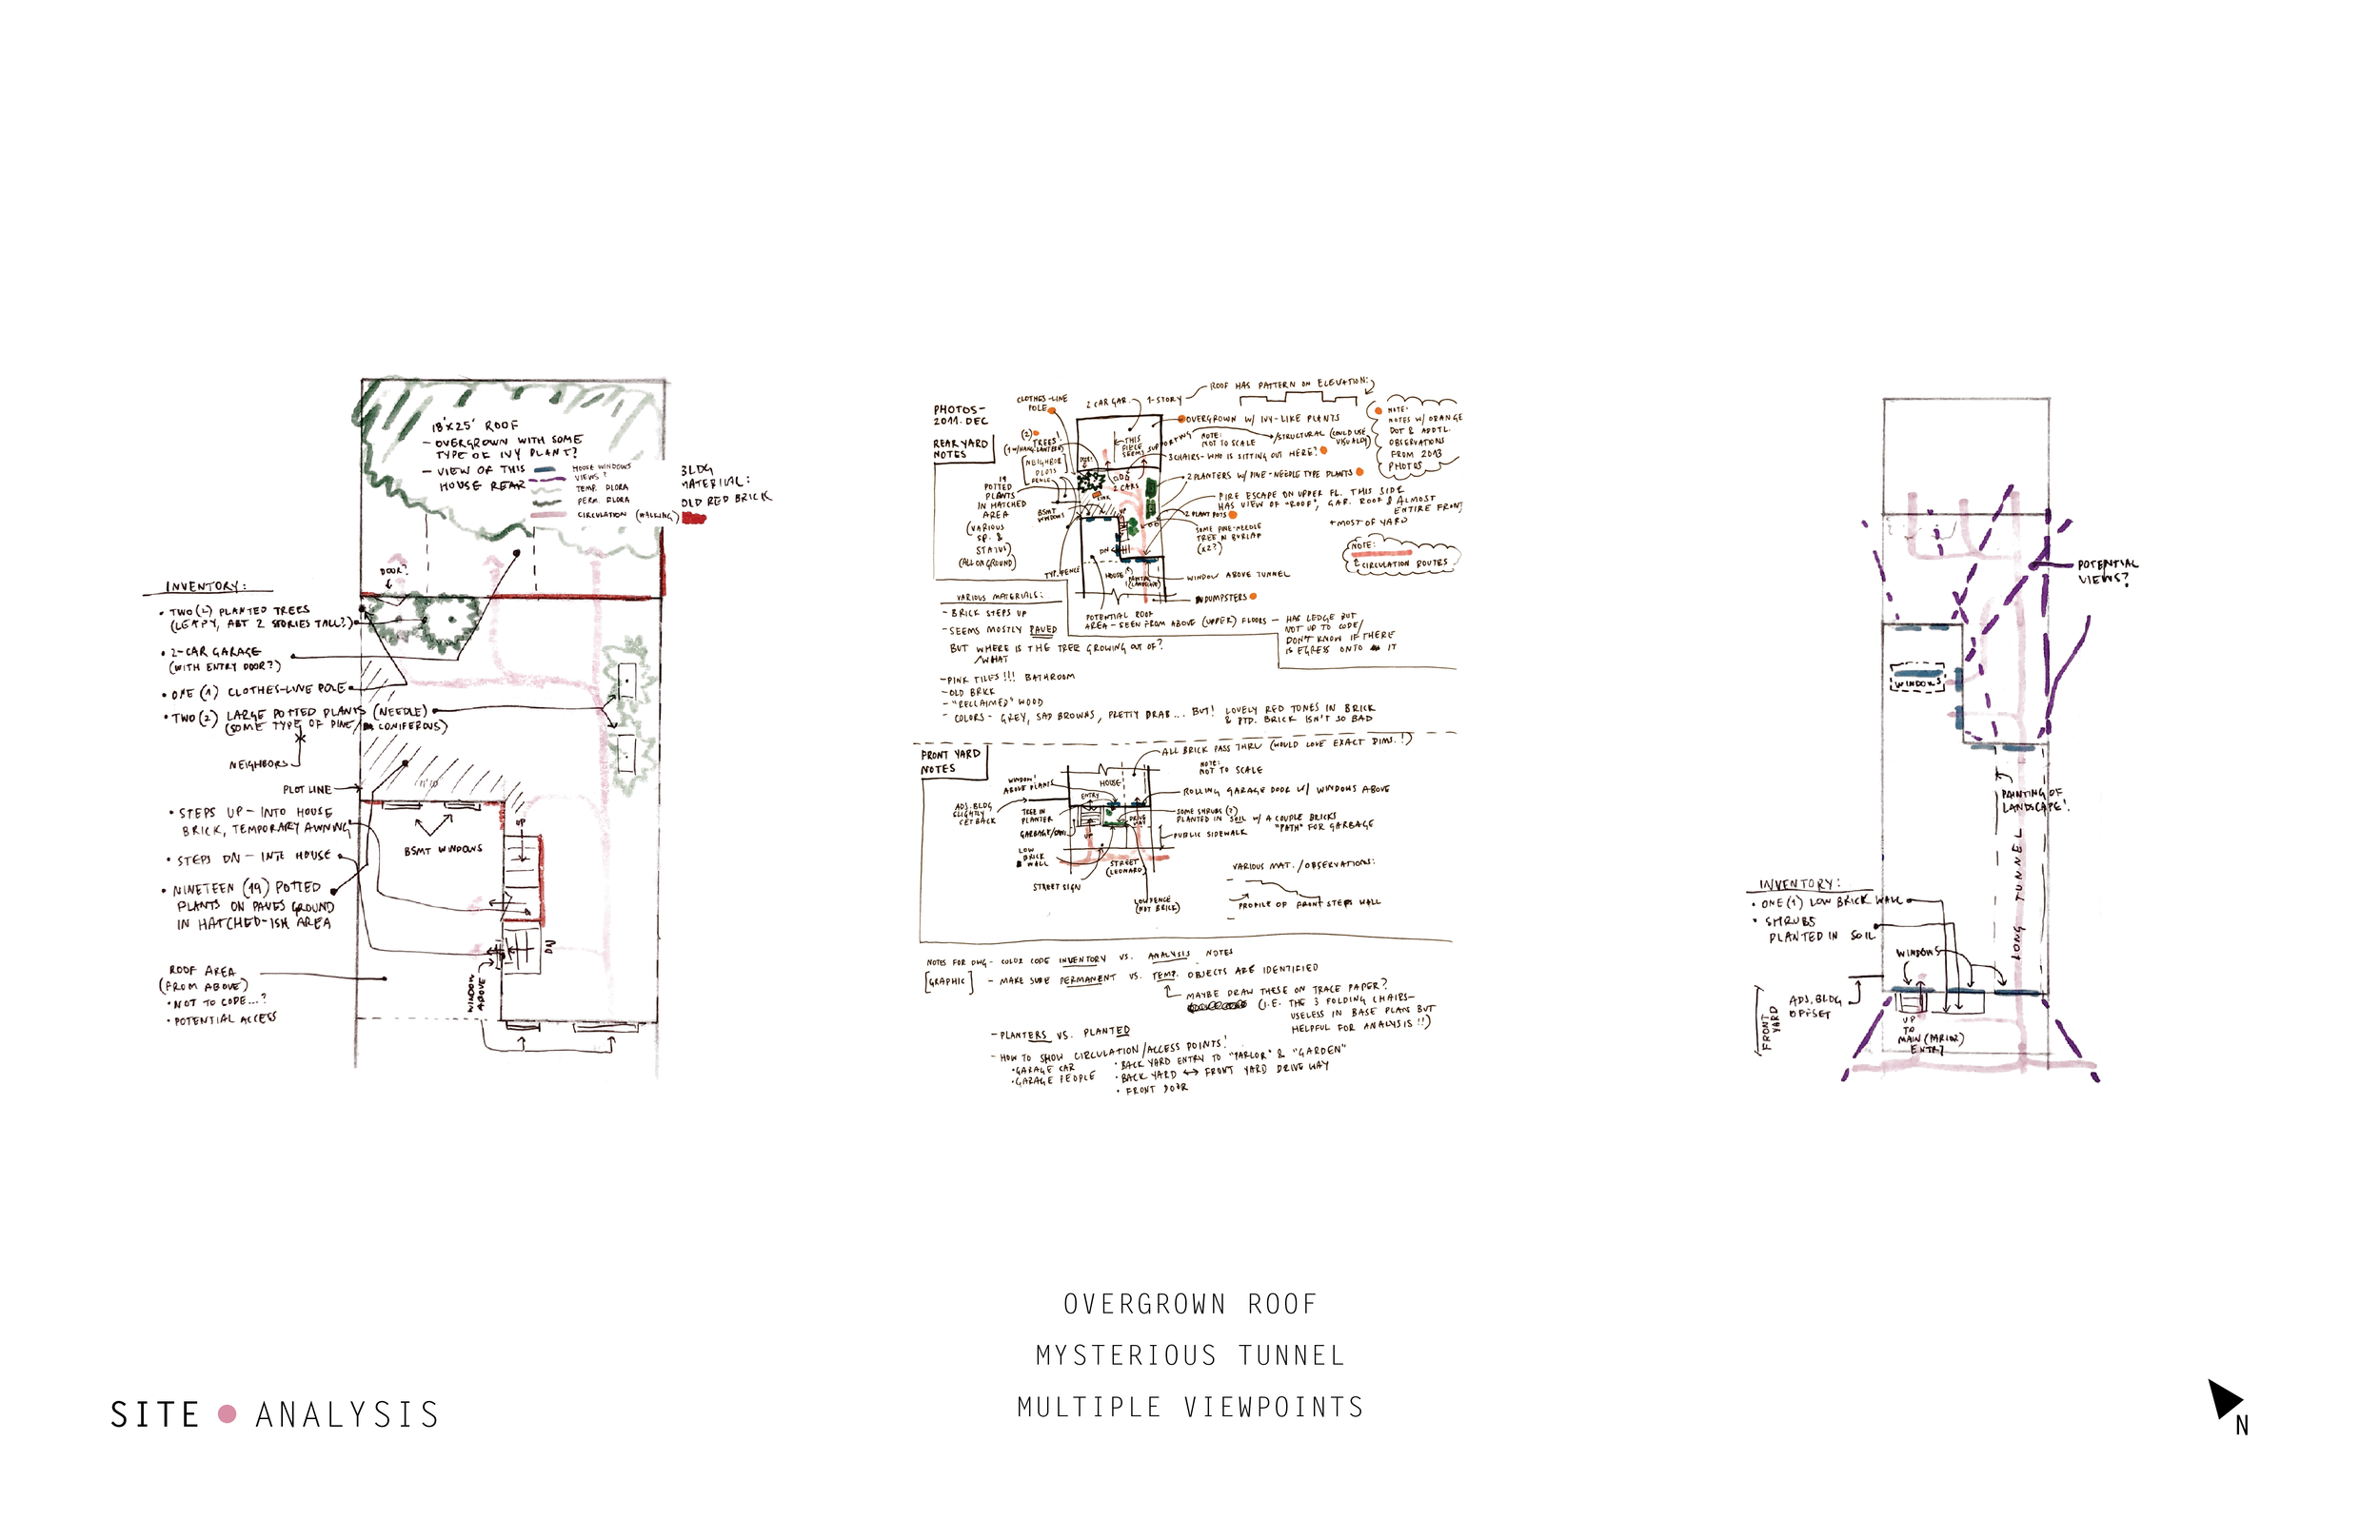 18'X25' ROOF
- OVERGROWN WITH SOME
TYPE OF IVY PLANT?
- VIEW OF THIS
HOUSE REAR
HOUSE WINDOWS
VIEWS?
TEMP. FLORA
PERM. FLORA
CIRCULATION (WALKING)
BLDG
MATERIAL:
OLD RED BRICK
DOOR?
INVENTORY:
• TWO (2) PLANTED TREES
(LEAFY, ABT 2 STORIES TALL?)
• 2-CAR GARAGE
(WITH ENTRY DOOR?)
• ONE (1) CLOTHES-LINE POLE
• TWO (2) LARGE POTTED PLANTS (NEEDLE)
(SOME TYPE OF PINE/ CONIFEROUS)
NEIGHBORS
PLOT LINE
• STEPS UP - INTO HOUSE
BRICK, TEMPORARY AWNING
• STEPS DN - INTO HOUSE
• NINETEEN (19) POTTED
PLANTS ON PAVED GROUND
IN HATCHED-ISH AREA
BSMT WINDOWS
UP
DN
WINDOW
ABOVE
ROOF AREA
(FROM ABOVE)
• NOT TO CODE...?
• POTENTIAL ACCESS
PHOTOS-
2011. DEC
REAR YARD
NOTES
CLOTHES-LINE
POLE
2 CAR GAR.
1-STORY
ROOF HAS PATTERN ON ELEVATION:
OVERGROWN W/ IVY-LIKE PLANTS
NOTE:
NOT TO SCALE
/STRUCTURAL (COULD USE
VISUALLY)
NOTE:
NOTES W/ ORANGE
DOT R ADDTL.
OBSERVATIONS
FROM 2013
PHOTOS
(2)
TREES!
[NEIGHBOR
PLOTS]
THIS
PIECE
SEEMS SUPPORTING
3 CHAIRS- WHO IS SITTING OUT HERE?
2 CARS
2 PLANTERS W/ PINE-NEEDLE TYPE PLANTS
19
POTTED
PLANTS
IN HATCHED
AREA
(VARIOUS
SP. &
STATUS)
(ALL ON GROUND)
BSMT
WINDOWS
FIRE ESCAPE ON UPPER FL. THIS SIDE
HAS VIEW OF "ROOF", GAR. ROOF & ALMOST
ENTIRE FRONT
+ MOST OF YARD
2 PLANT POTS
SOME PINE-NEEDLE
TREE IN BURLAP
(X2?)
NOTE:
CIRCULATION ROUTES
TYP. FENCE
DN
HOUSE
WINDOW ABOVE TUNNEL
DUMPSTERS
VARIOUS MATERIALS:
- BRICK STEPS UP
- SEEMS MOSTLY PAVED
BUT WHERE IS THE TREE GROWING OUT OF?
/WHAT
POTENTIAL ROOF
AREA - SEEN FROM ABOVE (UPPER) FLOORS - HAS LEDGE BUT
NOT UP TO CODE/
DON'T KNOW IF THERE
IS EGRESS ONTO IT
- PINK TILES!!! BATHROOM
- OLD BRICK
- "RECLAIMED" WOOD
- COLORS - GREY, SAD BROWNS, PRETTY DRAB... BUT! LOVELY RED TONES IN BRICK
& PTD. BRICK ISN'T SO BAD
FRONT YARD
NOTES
ALL BRICK PASS THRU (WOULD LOVE EXACT DIMS.!)
NOTE:
NOT TO SCALE
WINDOW!
ABOVE PLANTS
HOUSE
ENTRY
ROLLING GARAGE DOOR W/ WINDOWS ABOVE
ADJ. BLDG
SLIGHTLY
SET BACK
TREE IN
PLANTER
SOME SHRUBS (?)
PLANTED IN SOIL W/ A COUPLE BRICKS
"PATH" FOR GARBAGE
UP
PUBLIC SIDEWALK
LOW
BRICK
WALL
STREET
(LEONARD)
STREET SIGN
LOW FENCE
(NOT BRICK)
VARIOUS MAT./OBSERVATIONS:
PROFILE OF FRONT STEPS WALL
NOTES FOR DWG - COLOR CODE INVENTORY VS. ANALYSIS NOTES
[GRAPHIC] - MAKE SURE PERMANENT VS. TEMP. OBJECTS ARE IDENTIFIED
MAYBE DRAW THESE ON TRACE PAPER?
(I.E. THE 3 FOLDING CHAIRS-
USELESS IN BASE PLAN BUT
HELPFUL FOR ANALYSIS!!)
- PLANTERS VS. PLANTED
- HOW TO SHOW CIRCULATION/ACCESS POINTS!
• GARAGE CAR
• GARAGE PEOPLE
• BACK YARD ENTRY TO "PARLOR" & "GARDEN"
• BACK YARD ↔ FRONT YARD DRIVE WAY
• FRONT DOOR
POTENTIAL
VIEWS?
WINDOWS
PAINTING OF
LANDSCAPE!
LONG TUNNEL
INVENTORY:
• ONE (1) LOW BRICK WALL
• SHRUBS
PLANTED IN SOIL
WINDOWS
ADJ. BLDG
OFFSET
FRONT
YARD
UP
TO
MAIN (PRIOR)
ENTRY
OVERGROWN ROOF
MYSTERIOUS TUNNEL
MULTIPLE VIEWPOINTS
SITE • ANALYSIS
N